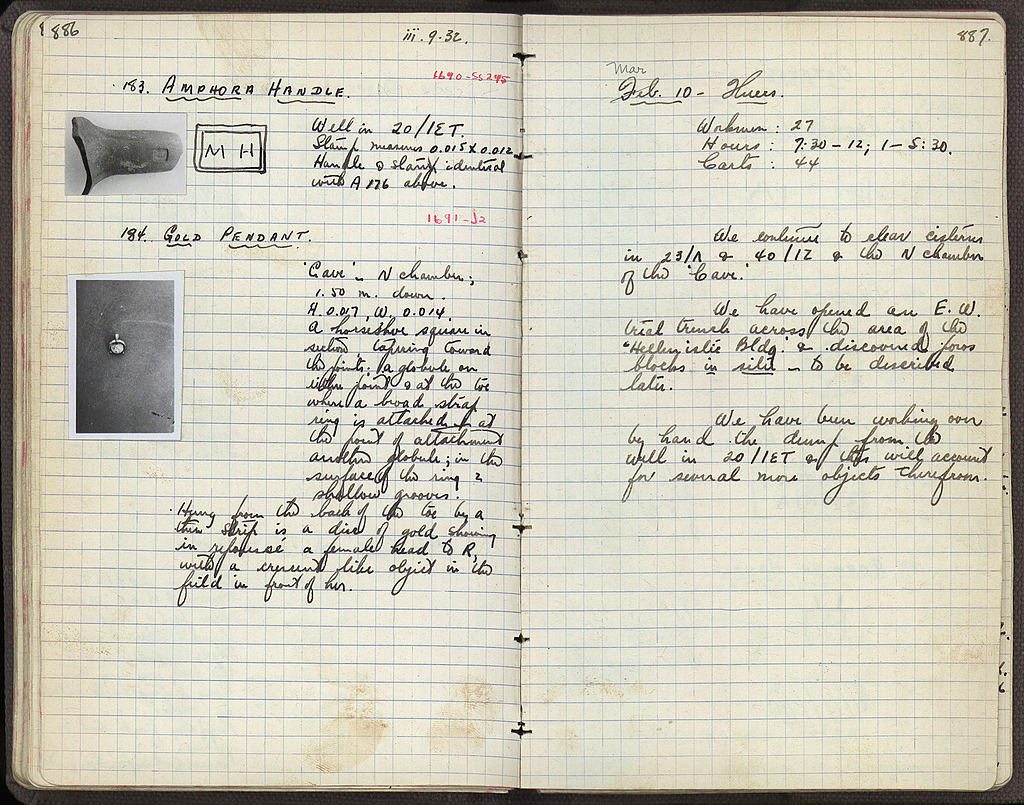 886
iii. 9. 32.
1690-SS 295
183. AMPHORA HANDLE.
M H
Well in 20/ΙΣΤ.
Stamp measures 0.015 x 0.012
Handle & stamp identical
with A 176 above.
1691-J2
184. GOLD PENDANT.
'Cave' - N chamber;
1.50 m. down.
H. 0.017, W. 0.014.
A horseshoe square in
section, tapering toward
the points: a globule on
either point & at the toe
where a broad strap
ring is attached; at
the point of attachment
another globule; in the
surface of the ring 2
shallow grooves.
Hung from the back of the toe by a
thin strip is a disc of gold showing
in repoussé a female head to R,
with a crescent like object in the
field in front of her.
887.
Mar
Feb. 10 - Thurs.
Workmen : 27
Hours : 7:30 - 12; 1 - 5:30.
Carts : 44
We continue to clear cisterns
in 23/Λ & 40/ΙΖ & the N chamber
of the 'Cave.'
We have opened an E. W.
trial trench across the area of the
"Hellenistic Bldg." & discovered poros
blocks in situ - to be described
later.
We have been working over
by hand the dump from the
well in 20/ΙΣΤ & this will account
for several more objects therefrom.